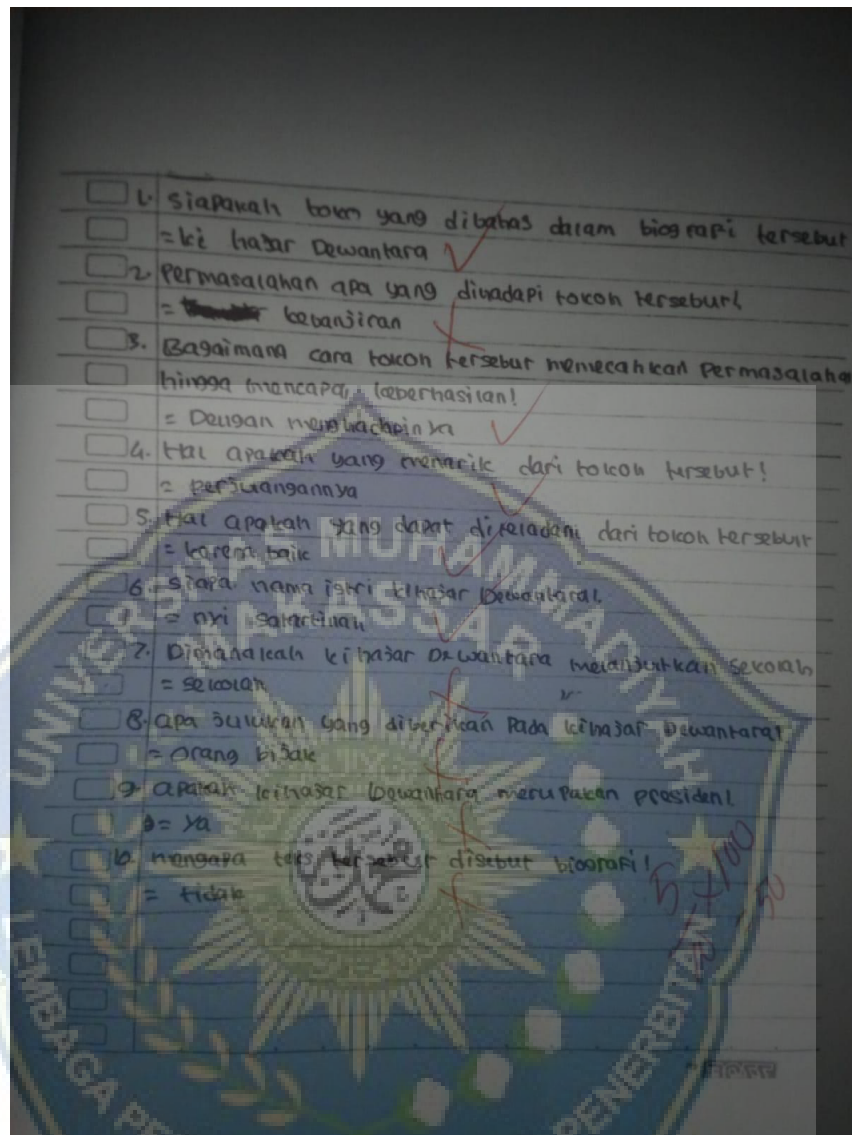 1. Siapakah tokoh yang dibahas dalam biografi tersebut
= ki hajar Dewantara
2. Permasalahan apa yang dihadapi tokoh tersebut!
= kebanjiran
3. Bagaimana cara tokoh tersebut memecahkan permasalaha
hingga mencapai keberhasilan!
= Dengan menghadapinya
4. Hal apakah yang menarik dari tokoh tersebut!
= perjuangannya
5. Hal apakah yang dapat diteladani dari tokoh tersebut
= karena baik
6. Siapa nama istri kihajar Dewantara!
= nyi
7. Dimanakah kihajar Dewantara melanjutkan sekolah
= sekolah
8. apa julukan yang diberikan Pada kihajar Dewantara!
= orang bijak
9. apakah kihajar Dewantara merupakan presiden!
= ya
10. mengapa teks tersebut disebut biografi!
= tidak
5 x 100
50
UNIVERSITAS MUHAMMADIYAH
MAKASSAR
LEMBAGA PE
PENERBITAN